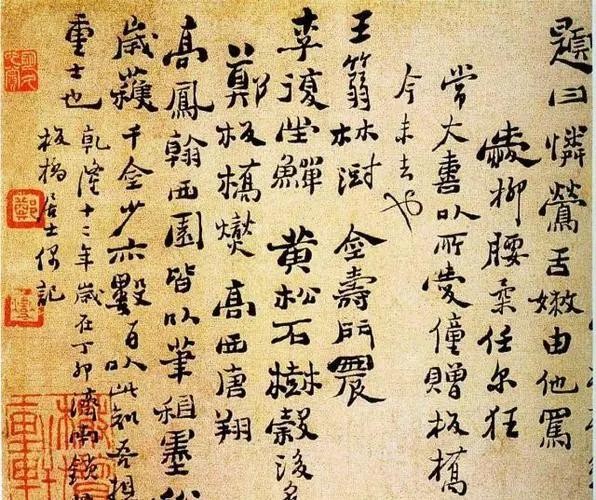 題曰憐鶯舌嫩由他罵
愛柳腰柔任尔狂
常大書以所愛僮贈板橋
今未去也
王篛林澍 金壽門農
李復堂鱓 黃松石樹榖後名
鄭板橋燮 高西唐翔
高鳳翰西園皆以筆租墨稅
歲獲千金少亦數百以此知吾
重士也
乾隆十二年歲在丁卯濟南鎖
板橋居士偶記